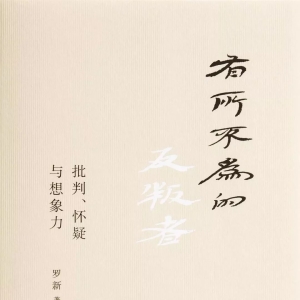 有所不为的
反叛者
批判、怀疑
与想象力
罗新 著